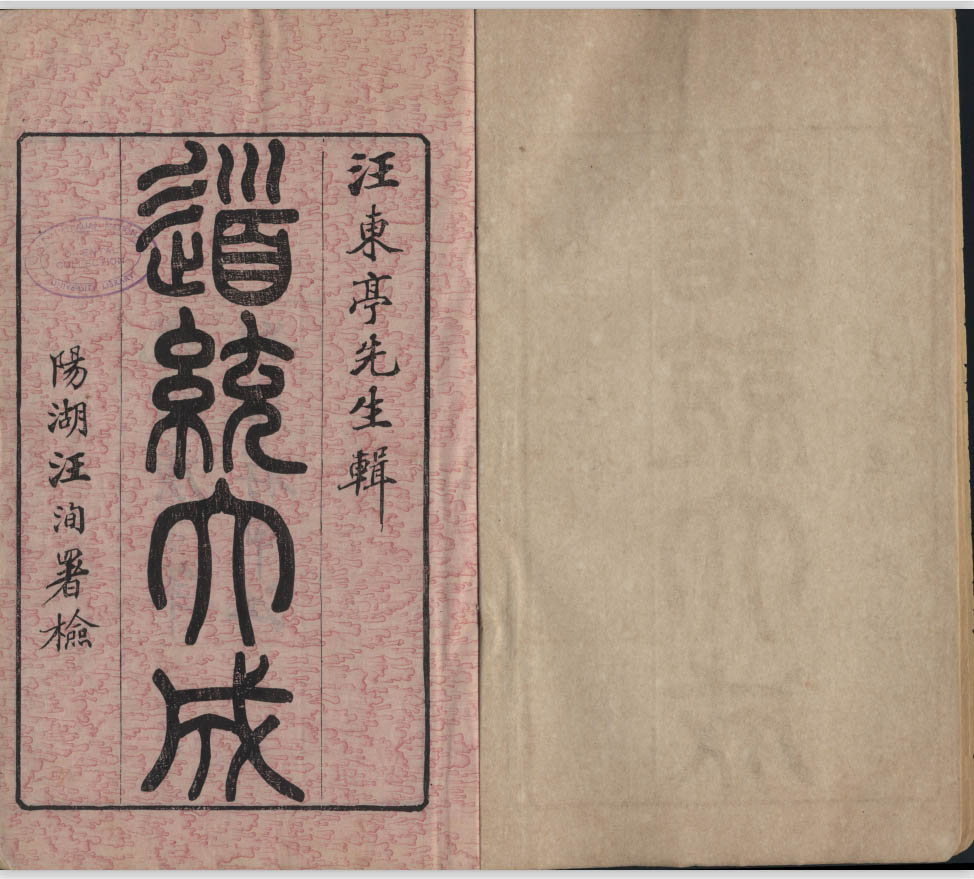 汪東亭先生輯
道統大成
陽湖汪洵署檢